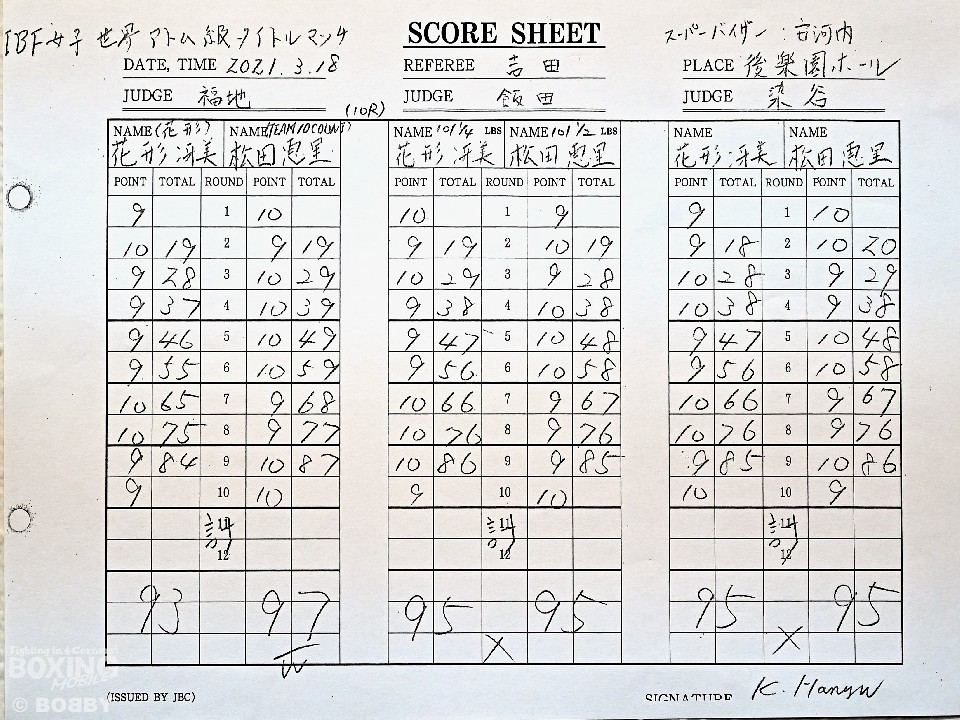 IBF女子 世界アトム級タイトルマッチ
SCORE SHEET
スーパーバイザー:古河内
DATE, TIME 2021.3.18
REFEREE 吉田
PLACE 後楽園ホール
JUDGE 福地
(10R)
JUDGE 飯田
JUDGE 染谷
NAME (花形) NAME (TEAM 10COUNT) NAME 101 1/4 LBS NAME 101 1/2 LBS NAME NAME
花形冴美 松田恵里 花形冴美 松田恵里 花形冴美 松田恵里
POINT TOTAL ROUND POINT TOTAL POINT TOTAL ROUND POINT TOTAL POINT TOTAL ROUND POINT TOTAL
9 1 10 10 1 9 9 1 10
10 19 2 9 19 9 19 2 10 19 9 18 2 10 20
9 28 3 10 29 10 29 3 9 28 10 28 3 9 29
9 37 4 10 39 9 38 4 10 38 10 38 4 9 38
9 46 5 10 49 9 47 5 10 48 9 47 5 10 48
9 55 6 10 59 9 56 6 10 58 9 56 6 10 58
10 65 7 9 68 10 66 7 9 67 10 66 7 9 67
10 75 8 9 77 10 76 8 9 76 10 76 8 9 76
9 84 9 10 87 10 86 9 9 85 9 85 9 10 86
9 10 10 9 10 10 10 10 9
計 11 計 11 計 11
12 12 12
93 97 95 95 95 95
X X
Fighting in 4 Corners!
BOXING
MOBILE
© BOBBY
(ISSUED BY JBC)
SIGNATURE